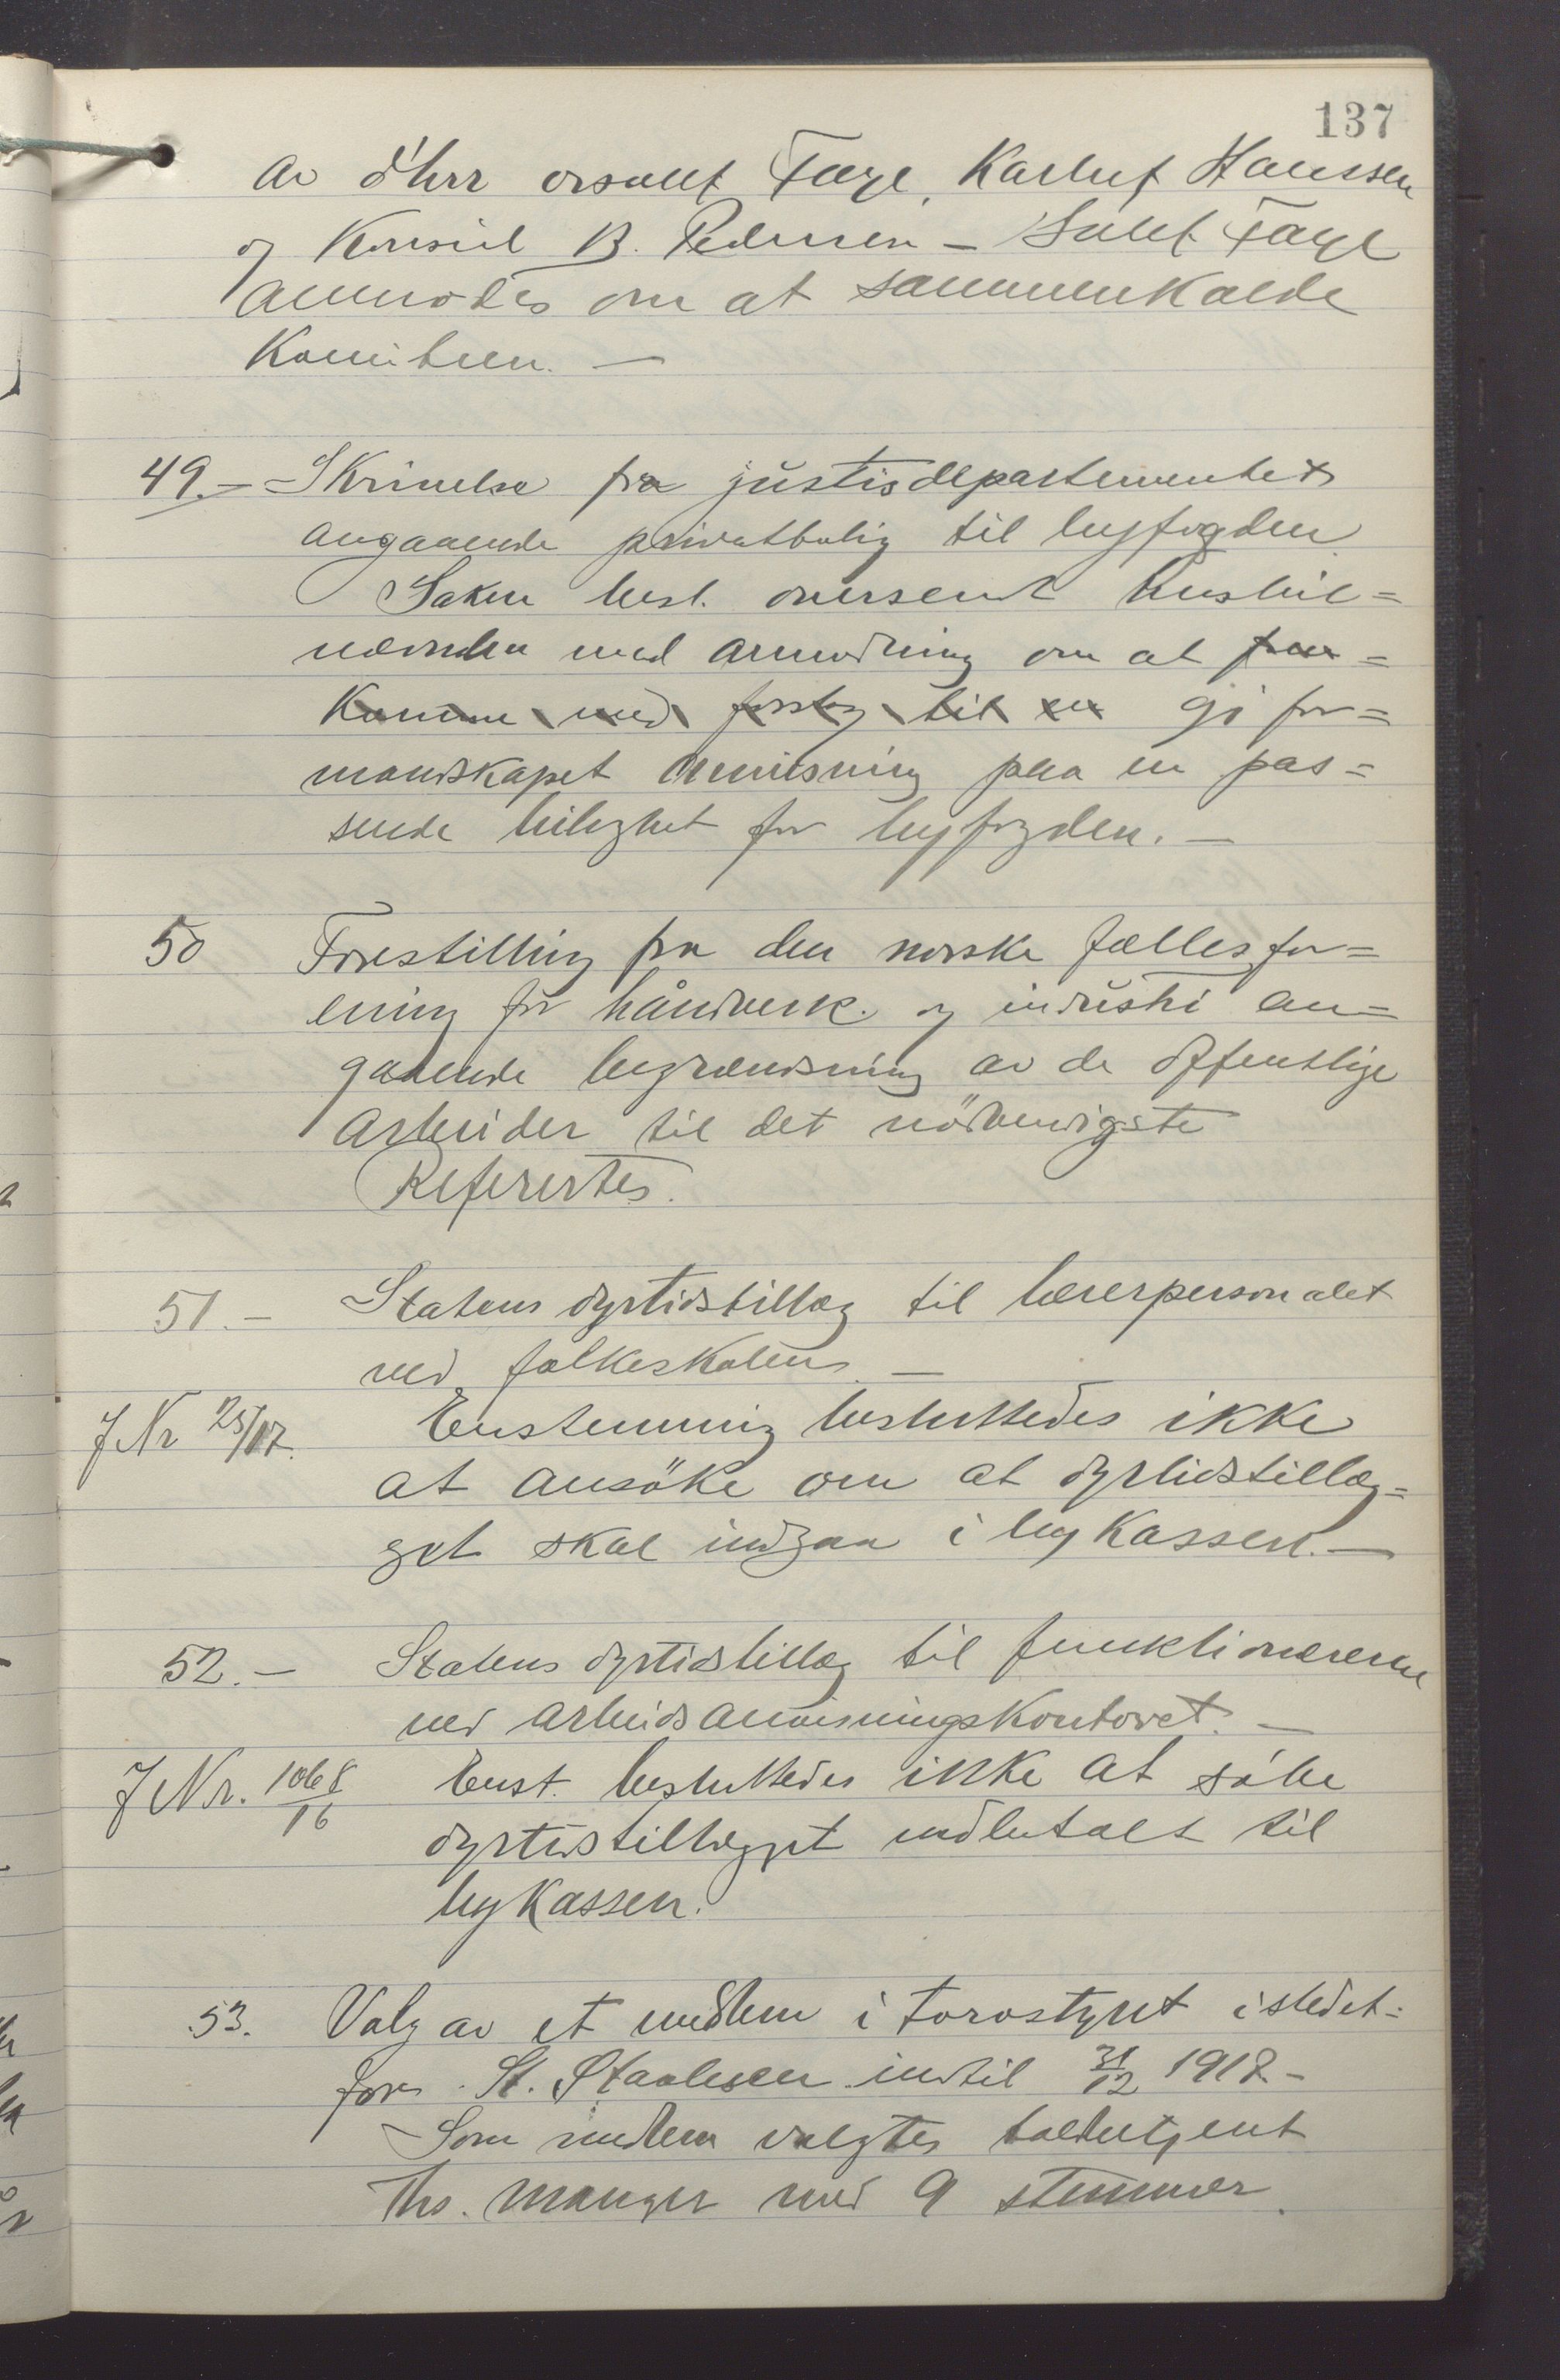 137
av d'hrr Faye, Karluf Hanssen
og Konsul B. Pedersen - Faye
anmodes om at sammenkalde
Komiteen. —
49. - Skrivelse fra justisdepartementet
angaaende privatbolig til byfogden.
Saken besl. oversendt husleie=
nævnden med anmodning om at frem=
komme med forslag til en gi for=
mandskapet anvisning paa en pas=
sende leilighet for byfogden. —
50 Forestilling fra den norske fællesfor=
ening for håndverk og industri an=
gaaende begrændsning av de offentlige
arbeider til det nödvendigste
Refereertes.
51. - Statens dyrtidstillæg til lærerpersonalet
ved folkeskolen. —
J Nr 25/17. Enstemmig besluttedes ikke
at ansöke om at dyrtidstillæg=
get skal indgaa i bykassen. —
52. - Statens dyrtidstillæg til funktionærerne
ved arbeidsanvisningskontoret. —
J Nr. 1068/16 Enst. besluttedes ikke at söke
dyrtidstillægget indbetalt til
bykassen.
53. Valg av et medlem i torvstyret istedet=
for St. Staalesen indtil 31/12 1918. -
Som medlem valgtes
Ths. Manger med 9 stemmer.